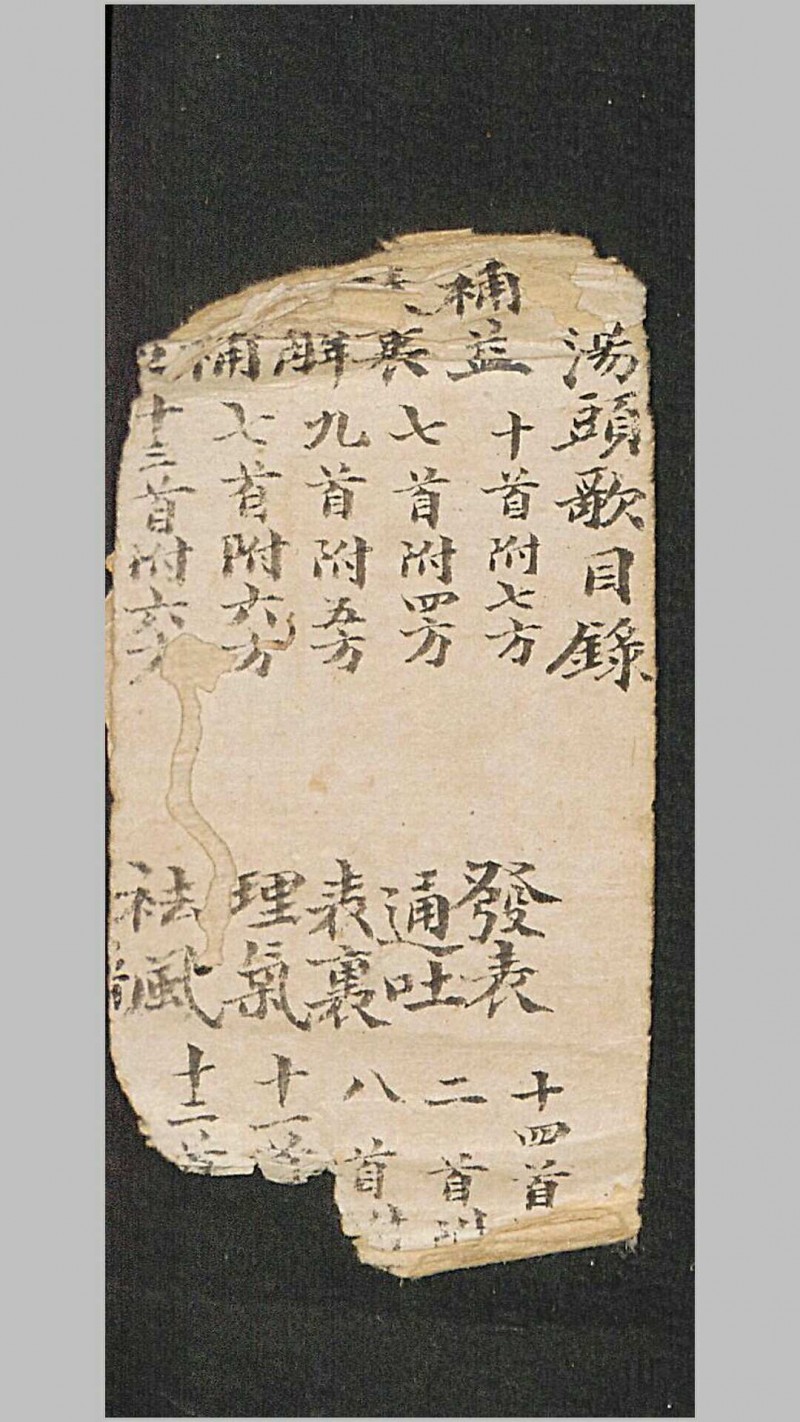 湯頭歌目錄
補益 十首附七方 發表 十四首
裏 七首附四方 通吐 二首附
解 九首附五方 表裏 八首
補 七首附六方 理氣 十一首
十三首附六方 祛風 十二首
首